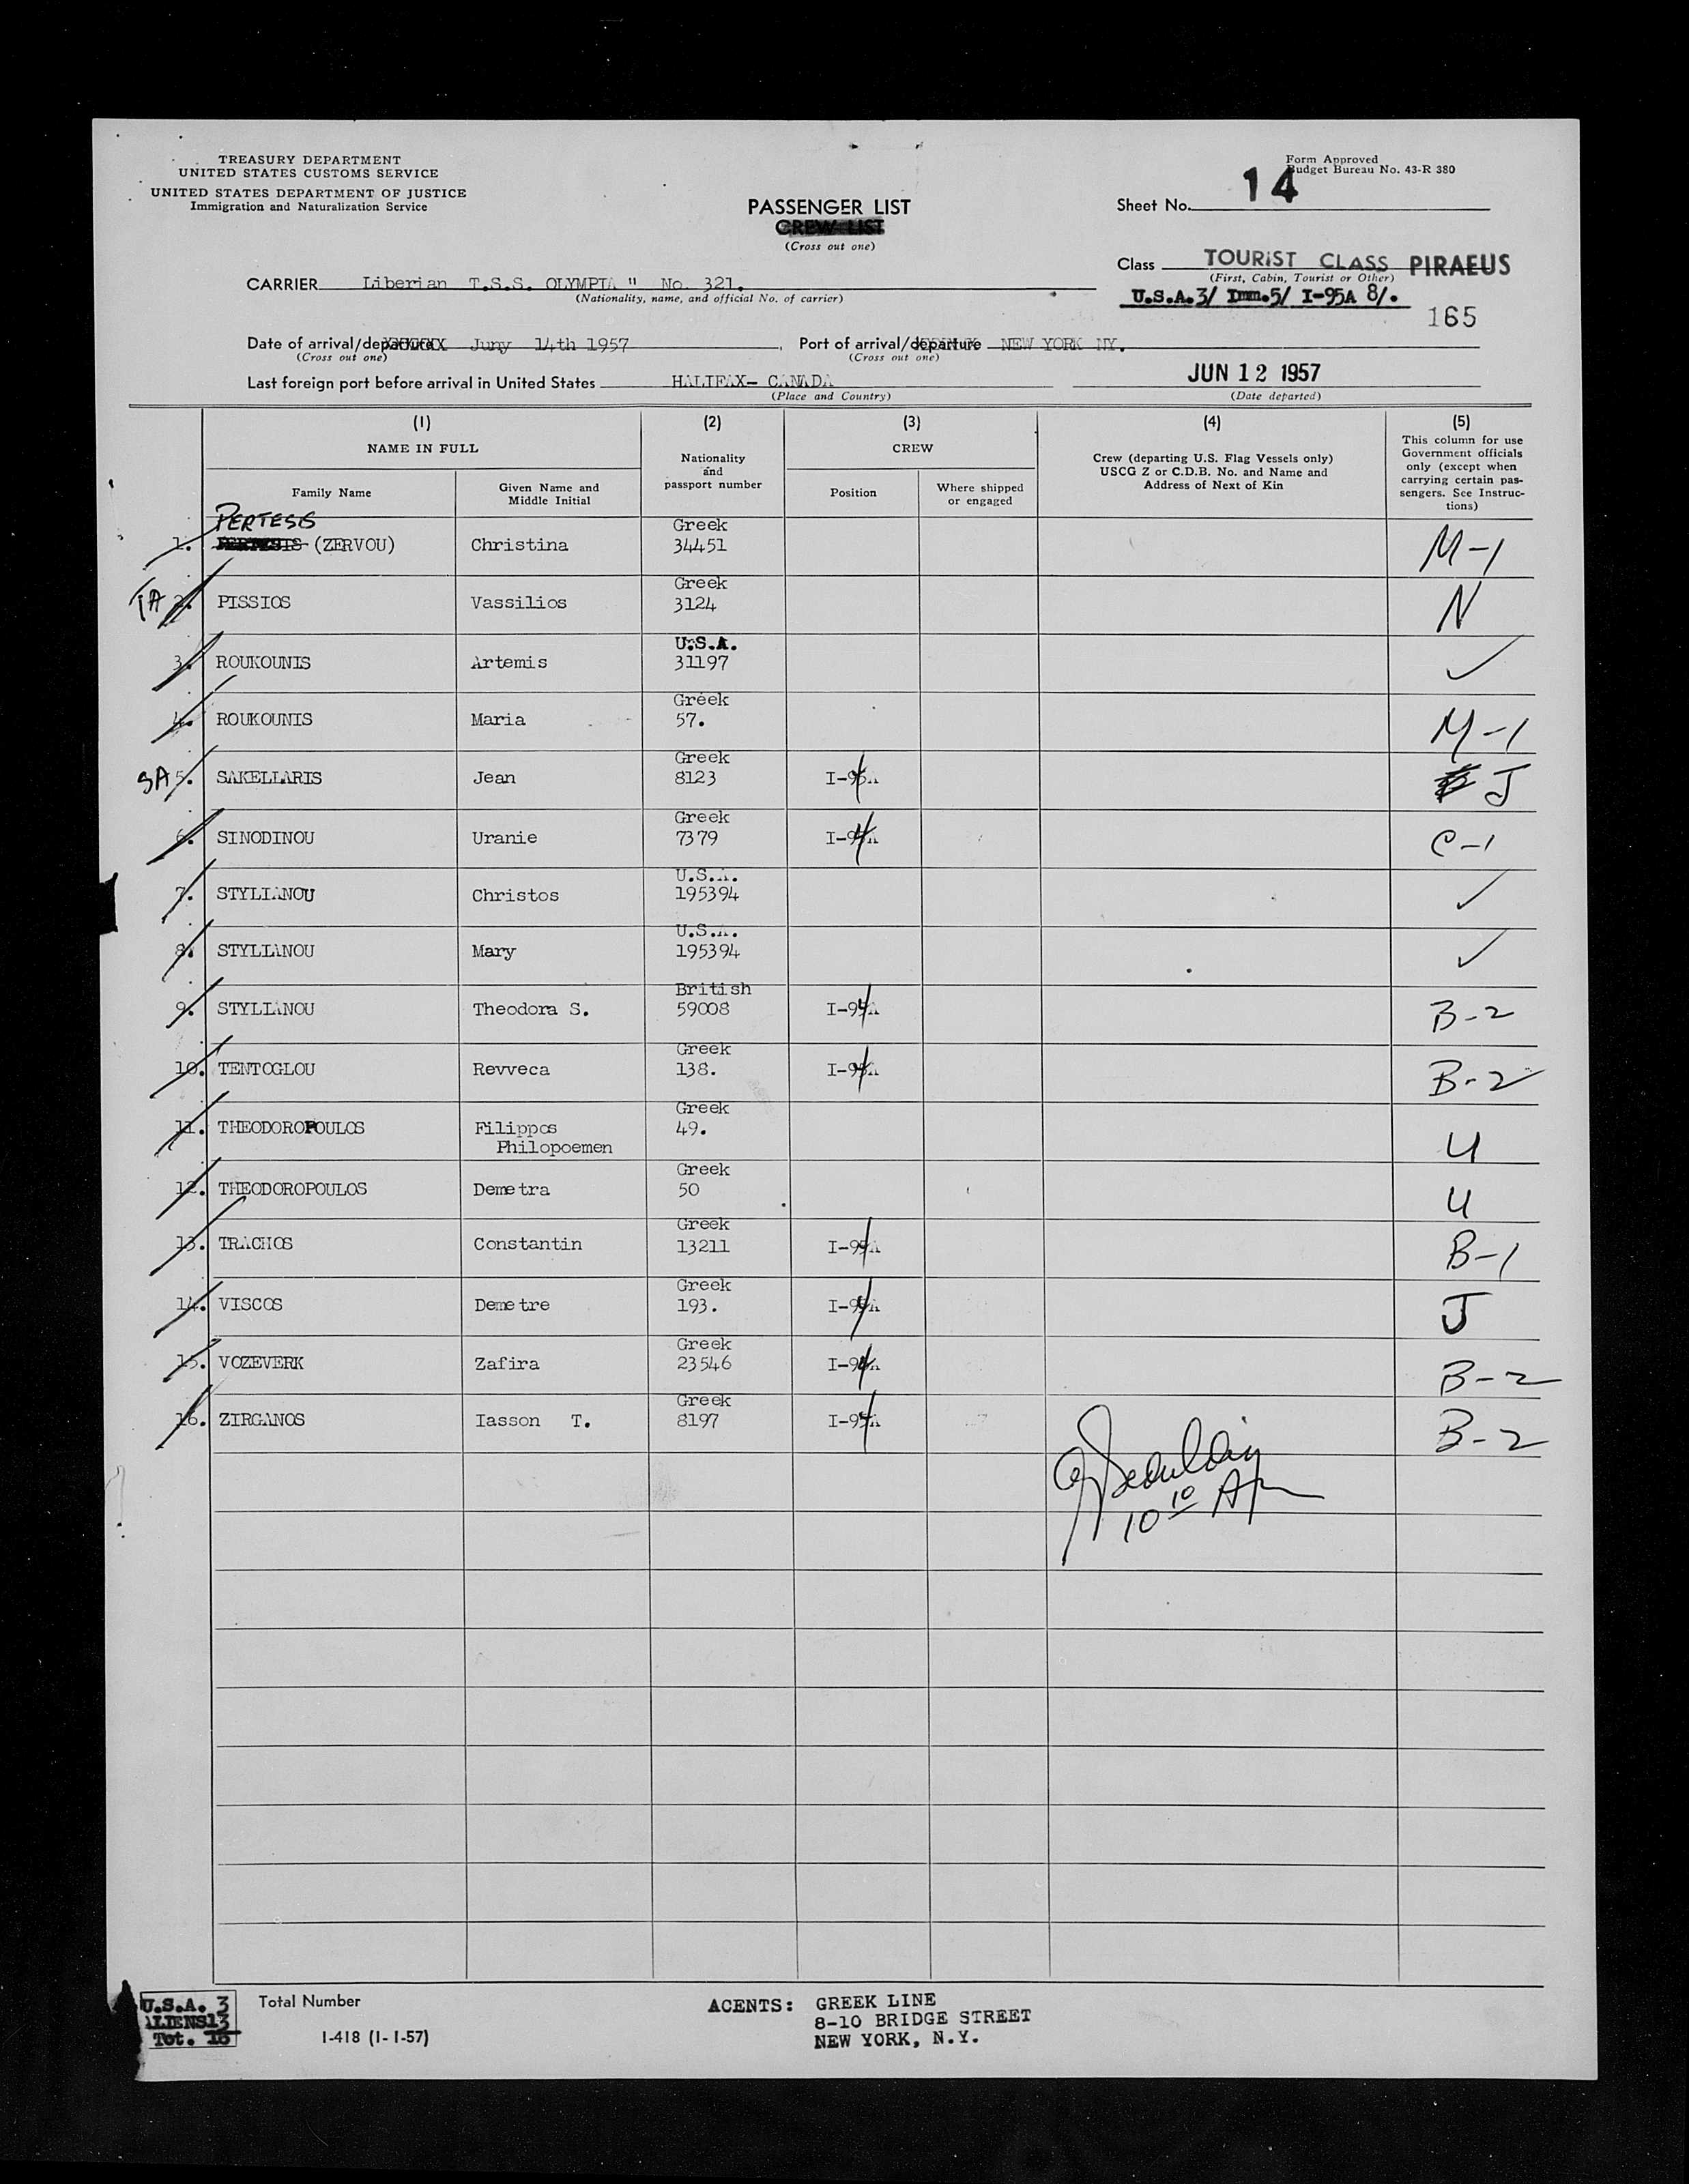 TREASURY DEPARTMENT
UNITED STATES CUSTOMS SERVICE
UNITED STATES DEPARTMENT OF JUSTICE
Immigration and Naturalization Service
PASSENGER LIST
CREW LIST
(Cross out one)
Form Approved
Budget Bureau No. 43-R 380
Sheet No. 14
Class TOURIST CLASS PIRAEUS
(First, Cabin, Tourist or Other)
U.S.A.3/ Imm.5/ I-95A 8/.
165
CARRIER Liberian T.S.S. OLYMPIA " No. 321.
(Nationality, name, and official No. of carrier)
Date of arrival/departure Juny 14th 1957. Port of arrival/departure NEW YORK NY.
(Cross out one) (Cross out one)
Last foreign port before arrival in United States HALIFAX- CANADA JUN 12 1957
(Place and Country) (Date departed)
(1) (2) (3) (4) (5)
NAME IN FULL
Family Name
Given Name and
Middle Initial
Nationality
and
passport number
CREW
Position
Where shipped
or engaged
Crew (departing U.S. Flag Vessels only)
USCG Z or C.D.B. No. and Name and
Address of Next of Kin
This column for use
Government officials
only (except when
carrying certain pas-
sengers. See Instruc-
tions)
PERTESIS Greek
1. (ZERVOU) Christina 34451 M-1
Greek
TA 2. PISSIOS Vassilios 3124 N
U.S.A.
3. ROUKOUNIS Artemis 31197 ✓
Greek
4. ROUKOUNIS Maria 57. M-1
Greek
SA 5. SAKELLARIS Jean 8123 I-95A J
Greek
6. SINODINOU Uranie 7379 I-95A C-1
U.S.A.
7. STYLIANOU Christos 195394 ✓
U.S.A.
8. STYLIANOU Mary 195394 ✓
British
9. STYLIANOU Theodora S. 59008 I-95A B-2
Greek
10. TENTOGLOU Revveca 138. I-95A B-2
Greek
11. THEODOROPOULOS Filippos 49. U
Philopoemen
Greek
12. THEODOROPOULOS Demetra 50 U
Greek
13. TRACHOS Constantin 13211 I-95A B-1
Greek
14. VISCOS Demetre 193. I-95A J
Greek
15. VOZEVERK Zafira 23546 I-95A B-2
Greek
16. ZIRGANOS Iasson T. 8197 I-95A B-2
10 10 Am
U.S.A. 3
ALIENS 13
Tot. 16
Total Number
I-418 (1-1-57)
AGENTS: GREEK LINE
8-10 BRIDGE STREET
NEW YORK, N.Y.